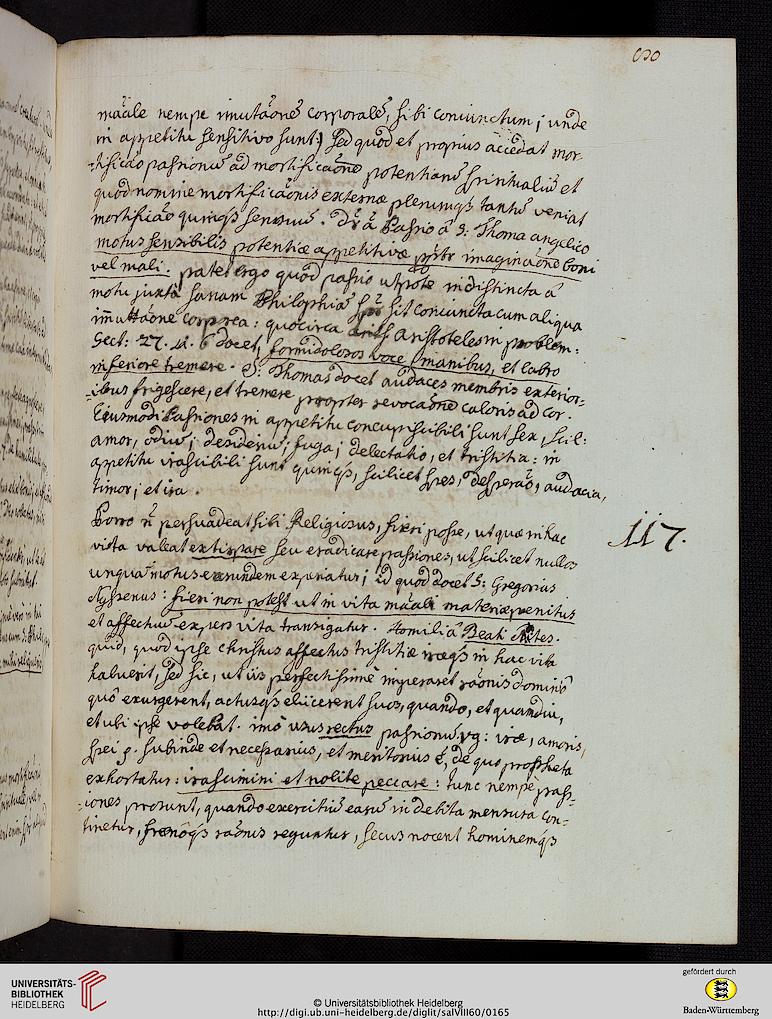 mãale nempe im̃utãone corporale, sibi coniunctum; unde
in appetitu sensitivo sunt:) sed quod et proprius accedat mor-
-tificão passionũ ad mortificãone potentiarũ spiritualiũ et
quod nomine mortificãonis externæ plerumq3 tantũ veniat
mortificão quinq3 sensuũ. Dr̃ ã Passio a S: Thoma angelico
motus sensibilis potentiæ appetitivæ pptr imaginãone boni
vel mali. patet ergo quod passio utpote indistincta à
motu juxta sanam Philosphiã sit coniuncta cum aliqua
im̃utãone corporea: quocirca Aristoteles in problem:
Sect: 27. docet, formidolosos voce, manibus, et labro
inferiore tremere. S: Thomas docet audaces membris exterior-
-ibus frigescere, et tremere propter revocãone caloris ad cor.
Eiusmodi Passiones in appetitu concupiscibili sunt sex, scil:
amor, odiũ; desideriũ; fuga; delectatio, et tristitia: in
appetitu irascibili sunt quinq3, scilicet spes, desperão, audacia,
timor; et ira.
Porro ñ persuadeat sibi Religiosus, fieri posse, ut quæ in hac
vita valeat extirpare seu eradicare passiones, ut scilicet nullos
unquã motus earundem experiatur; id quod docet S: Gregorius
Nyssenus: fieri non potest ut in vita mãali materiæ penitus
et affectuũ expers vita transigatur. Homiliã Beati Mites.
quid, quod ipse Christus affectus tristitiæ in hac vita
habuerit, sed sic, ut iis perfectissime imperaret rãonis dominio
quõ exurgerent, actusq3 elicerent suos, quando, et quamdiu,
et ubi ipse volebat. imò usus rectus passionũ vg: iræ, amoris,
spei 9. subinde et necessarius, et meritorius ẽ, de quo propheta
exhortatur: irascimini et nolite peccare: tunc nempe pass-
-iones prosunt, quando exercitiũ earũ in debita mensura con-
tinetur, frænoq3 rãonis reguntur, secus nocent hominemq3
117.
UNIVERSITÄTS-
BIBLIOTHEK
HEIDELBERG
© Universitätsbibliothek Heidelberg
http://digi.ub.uni-heidelberg.de/diglit/salVIII60/0165
gefördert durch
Baden-Württemberg